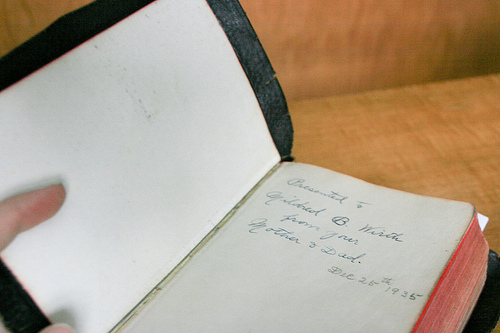 Presented to
Mildred B Wirth
from your
Mother & Dad.
Dec 25th 1935